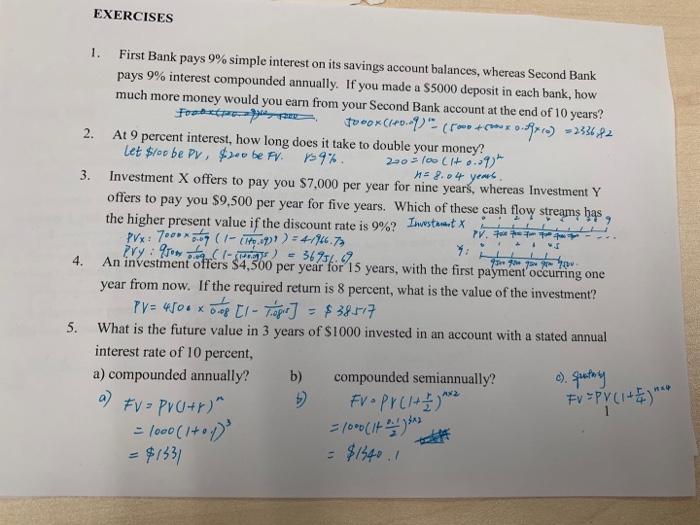 EXERCISES
1. First Bank pays 9% simple interest on its savings account balances, whereas Second Bank
pays 9% interest compounded annually. If you made a $5000 deposit in each bank, how
much more money would you earn from your Second Bank account at the end of 10 years?
5000×(1+0.09)^10 - (5000+5000×0.09×10) = 2336.82
2. At 9 percent interest, how long does it take to double your money?
Let $100 be PV, $200 be FV. r=9%. 200=100(1+0.09)^n
n=8.04 years.
3. Investment X offers to pay you $7,000 per year for nine years, whereas Investment Y
offers to pay you $9,500 per year for five years. Which of these cash flow streams has
the higher present value if the discount rate is 9%? Investment X
PVx: 7000× 1/0.09 (1- 1/(1+0.09)^9) = 41966.73
PVy: 9500 1/0.09 (1- 1/(1+0.09)^5) = 36951.69
Y:
4. An investment offers $4,500 per year for 15 years, with the first payment occurring one
year from now. If the required return is 8 percent, what is the value of the investment?
PV= 4500 × 1/0.08 [1- 1/1.08^15] = $38517
5. What is the future value in 3 years of $1000 invested in an account with a stated annual
interest rate of 10 percent,
a) compounded annually? b) compounded semiannually? c).
a) FV = PV(1+r)^n
= 1000(1+0.1)^3
= $1331
b) FV = PV(1+r/2)^n×2
= 1000(1+0.1/2)^3×2
= $1340.1
FV = PV(1+r/4)^n×4
1